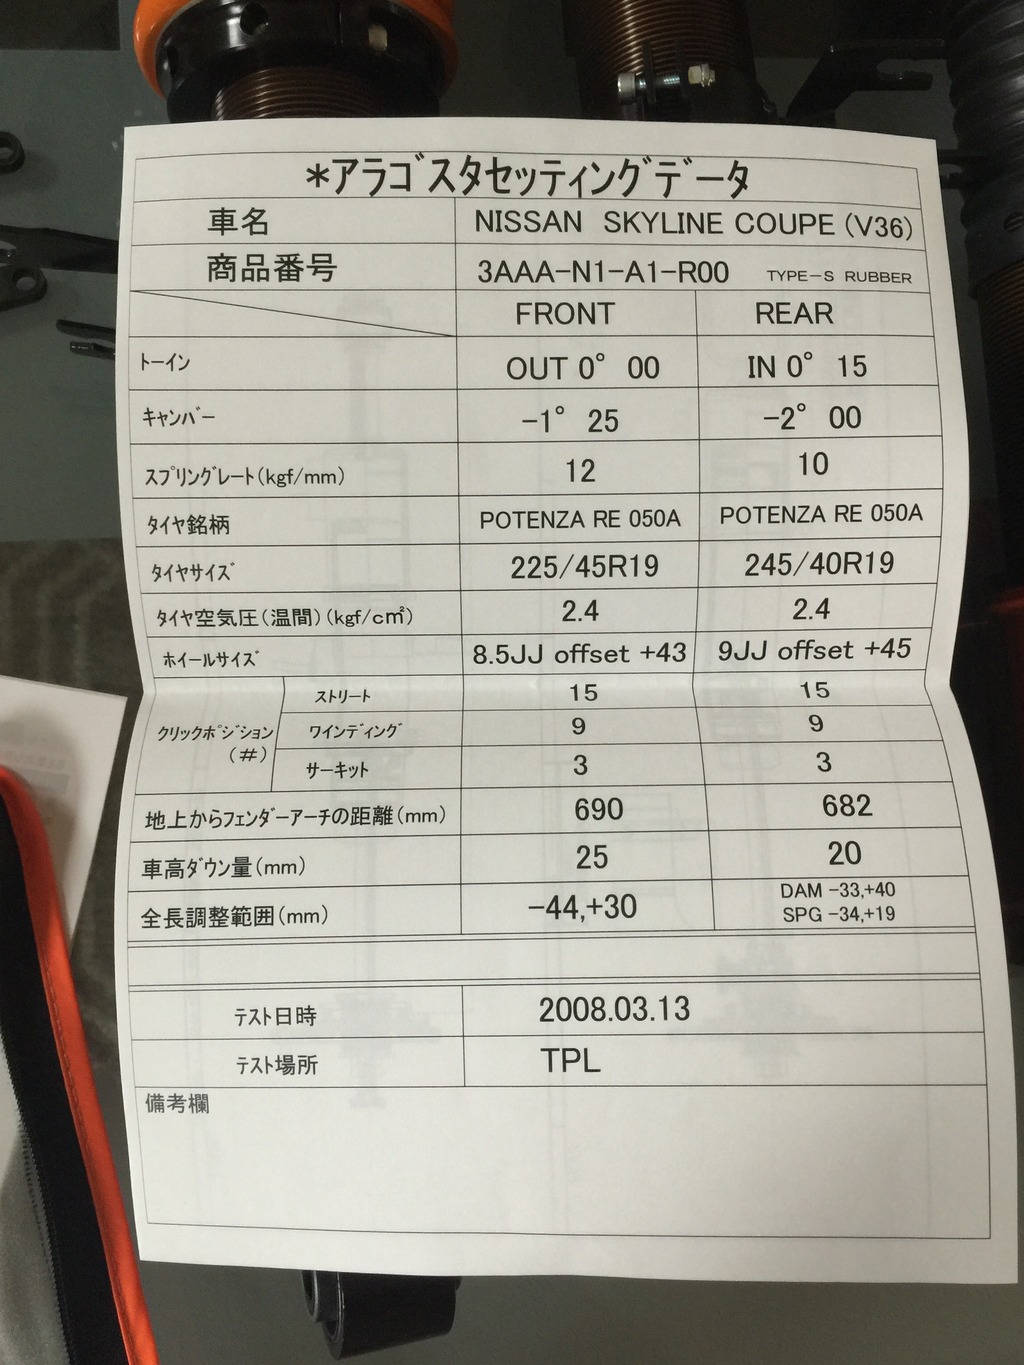 *アラゴスタセッティングデータ
車名 NISSAN SKYLINE COUPE (V36)
商品番号 3AAA-N1-A1-R00 TYPE-S RUBBER
FRONT REAR
トーイン OUT 0° 00 IN 0° 15
キャンバー -1° 25 -2° 00
スプリングレート(kgf/mm) 12 10
タイヤ銘柄 POTENZA RE 050A POTENZA RE 050A
タイヤサイズ 225/45R19 245/40R19
タイヤ空気圧(温間)(kgf/c㎡) 2.4 2.4
ホイールサイズ 8.5JJ offset +43 9JJ offset +45
クリックポジション(#)
ストリート 15 15
ワインディング 9 9
サーキット 3 3
地上からフェンダーアーチの距離(mm) 690 682
車高ダウン量(mm) 25 20
全長調整範囲(mm) -44,+30 DAM -33,+40
SPG -34,+19
テスト日時 2008.03.13
テスト場所 TPL
備考欄